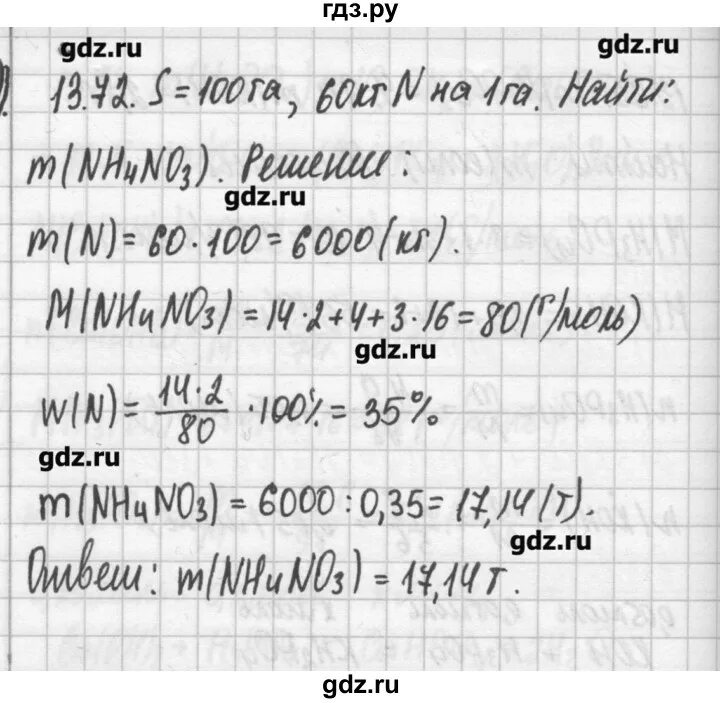 гдз.ру
gdz.ru gdz.ru
13.72. S = 100 га, 60 кг N на 1 га. Найти:
m(NH4NO3). Решение:
gdz.ru
m(N) = 60 · 100 = 6000 (кг).
M(NH4NO3) = 14 · 2 + 4 + 3 · 16 = 80 (г/моль)
gdz.ru
W(N) = 14·2/80 · 100% = 35%
gdz.ru
m(NH4NO3) = 6000 : 0,35 = 17,14 (т).
gdz.ru
Ответ: m(NH4NO3) = 17,14 т.
gdz.ru